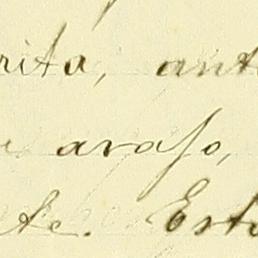 rita, ant
arajo,
te. Esta